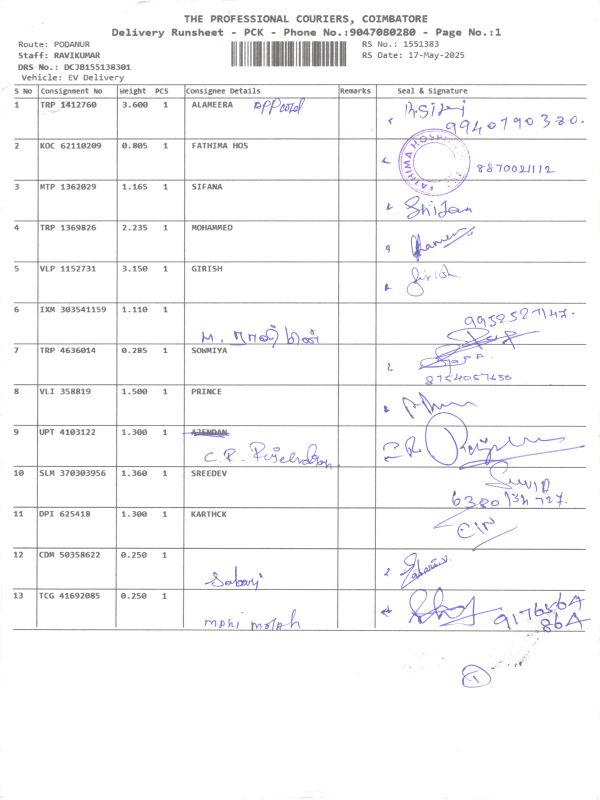 THE PROFESSIONAL COURIERS, COIMBATORE
Delivery Runsheet - PCK - Phone No.:9047080280 - Page No.:1
Route: PODANUR RS No.: 1551383
Staff: RAVIKUMAR RS Date: 17-May-2025
DRS No.: DCJB155138301
Vehicle: EV Delivery
S No Consignment No Weight PCS Consignee Details Remarks Seal & Signature
1 TRP 1412760 3.600 1 ALAMEERA
9940790380.
2 KOC 62110209 0.805 1 FATHIMA HOS
FATHIMA HOSPITAL
8870021112
3 MTP 1362029 1.165 1 SIFANA
4 TRP 1369826 2.235 1 MOHAMMED
5 VLP 1152731 3.150 1 GIRISH Girish.
6 IXM 303541159 1.110 1
9952527147.
7 TRP 4636014 0.285 1 SOWMIYA
8754057650
8 VLI 358819 1.500 1 PRINCE
9 UPT 4103122 1.300 1 AJENDAN
C.R.
10 SLM 370303956 1.360 1 SREEDEV
11 DPI 625418 1.300 1 KARTHCK
12 CDM 50358622 0.250 1
Sabari
13 TCG 41692085 0.250 1
917656A
86A
1